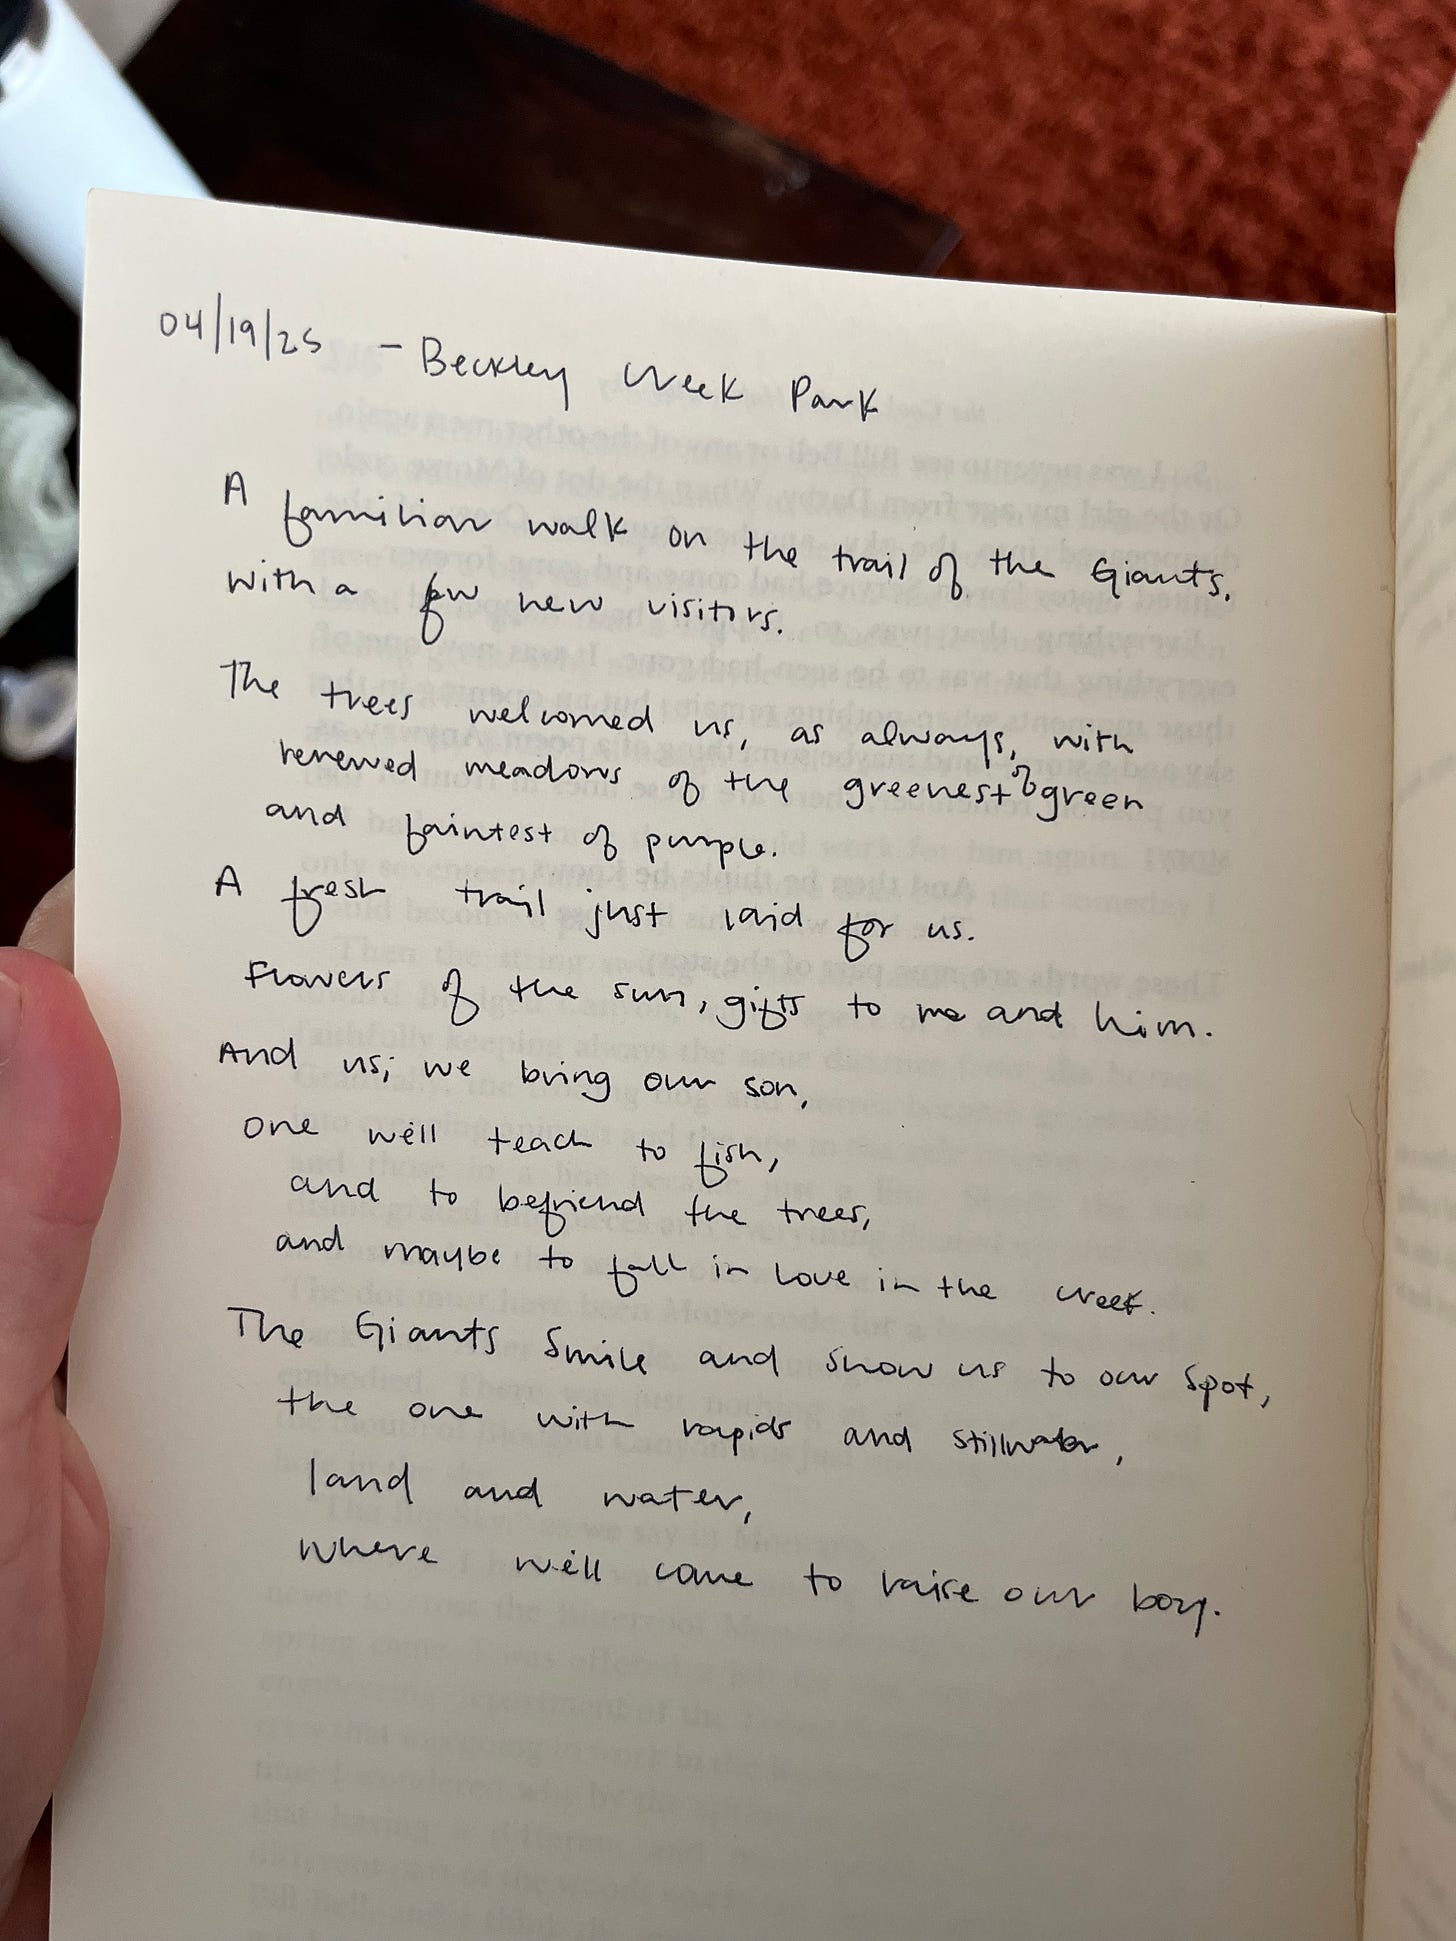 04/19/25 - Beckley Creek Park
A familiar walk on the trail of the Giants,
with a few new visitors.
The trees welcomed us, as always, with
renewed meadows of the greenest of green
and faintest of purple.
A fresh trail just laid for us.
Flowers of the sun, gifts to me and him.
And us; we bring our son,
one we'll teach to fish,
and to befriend the trees,
and maybe to fall in love in the creek.
The Giants smile and show us to our spot,
the one with rapids and stillwater,
land and water,
where we'll come to raise our boy.